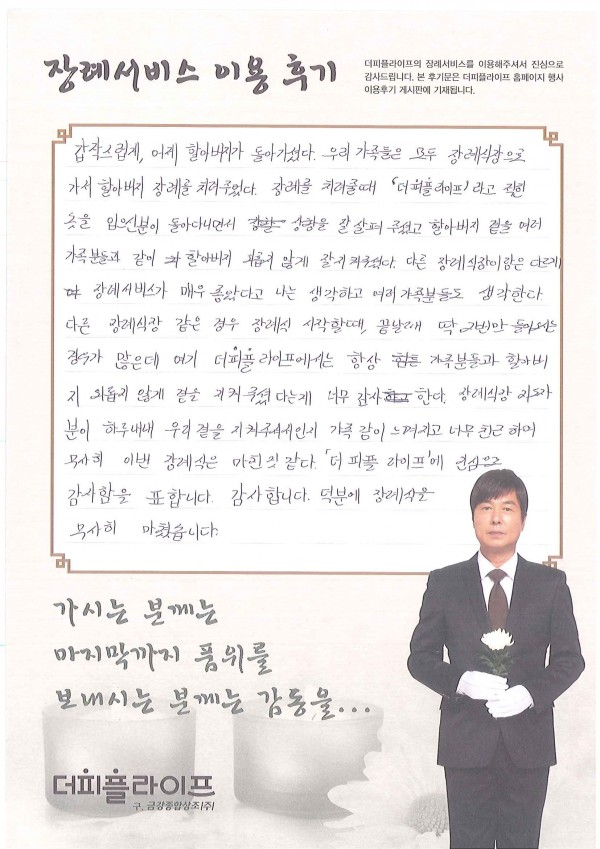 장례서비스 이용 후기
더피플라이프의 장례서비스를 이용해주셔서 진심으로
감사드립니다. 본 후기문은 더피플라이프 홈페이지 행사
이용후기 게시판에 기재됩니다.
갑작스럽게, 어제 할아버지가 돌아가셨다. 우리 가족들은 모두 장례식장으로
가서 할아버지 장례를 치러주었다. 장례를 치러줄때 '더피플라이프'라고 적힌
옷을 입으신분이 돌아다니면서 상황을 잘 살펴 주셨고 할아버지 곁을 여러
가족분들과 같이 할아버지 외롭지 않게 잘 지켜주셨다. 다른 장례식장이랑은 다르게
장례서비스가 매우 좋았다고 나는 생각하고 여러 가족분들도 생각한다.
다른 장례식장 같은 경우 장례식 시작할때, 끝날때 딱 2번만 돌아보는
경우가 많은데 여기 더피플라이프에서는 항상 가족분들과 할아버
지 외롭지 않게 곁을 지켜주셨다는게 너무 감사 한다. 장례식장 지도자
분이 하루내내 우리 곁을 지켜주셔서인지 가족 같이 느껴지고 너무 친근 하여
무사히 이번 장례식은 마친것 같다. 「더 피플 라이프」에 진심으로
감사함을 표합니다. 감사합니다. 덕분에 장례식을
무사히 마쳤습니다.
가시는 분께는
마지막까지 품위를
보내시는 분께는 감동을...
더피플라이프
구. 금강종합상조(주)